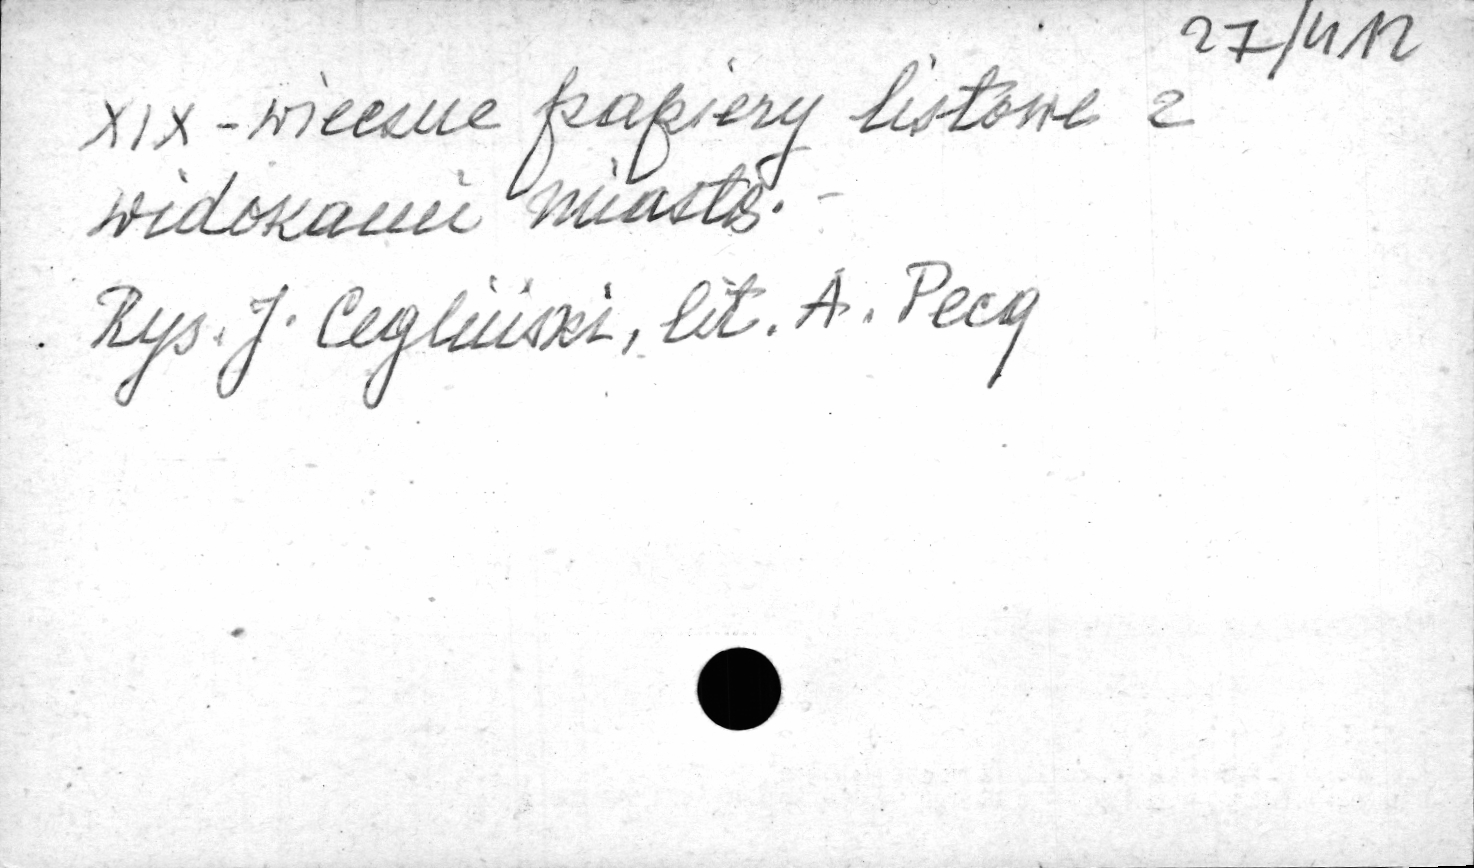 27/412
XIX-wieczne papiery listowe z
widokami miasta. -
Rys. J. Cegliński, lit. A. Pecq